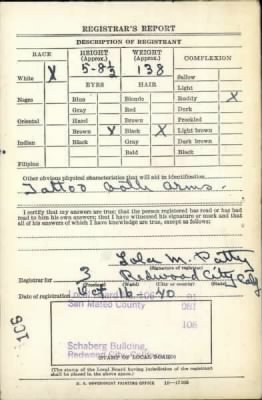 REGISTRAR'S REPORT
DESCRIPTION OF REGISTRANT
RACE HEIGHT (Approx.) WEIGHT (Approx.) COMPLEXION
White X 5-8½ 138 Sallow
EYES HAIR Light
Negro Blue Blonde Ruddy X
Gray Red Dark
Oriental Hazel Brown Freckled
Brown X Black X Light brown
Indian Black Gray Dark brown
Bald Black
Filipino
Other obvious physical characteristics that will aid in identification
Tattoo both arms.
I certify that my answers are true; that the person registered has read or has had
read to him his own answers; that I have witnessed his signature or mark and that
all of his answers of which I have knowledge are true, except as follows:
Lola M. Patty
(Signature of registrar)
Registrar for 3 Redwood City Calif
(Precinct) (Ward) (City or county) (State)
Date of registration Oct 16-40
106
San Mateo County 081
106
Schaberg Building,
Redwood City,
STAMP OF LOCAL BOARD
(The stamp of the Local Board having jurisdiction of the registrant
shall be placed in the above space.)
U. S. GOVERNMENT PRINTING OFFICE 16-17105
106